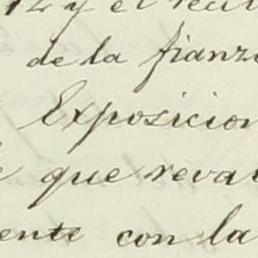 12 y el reci
de la fianz
Exposicion
que reva
ente con la